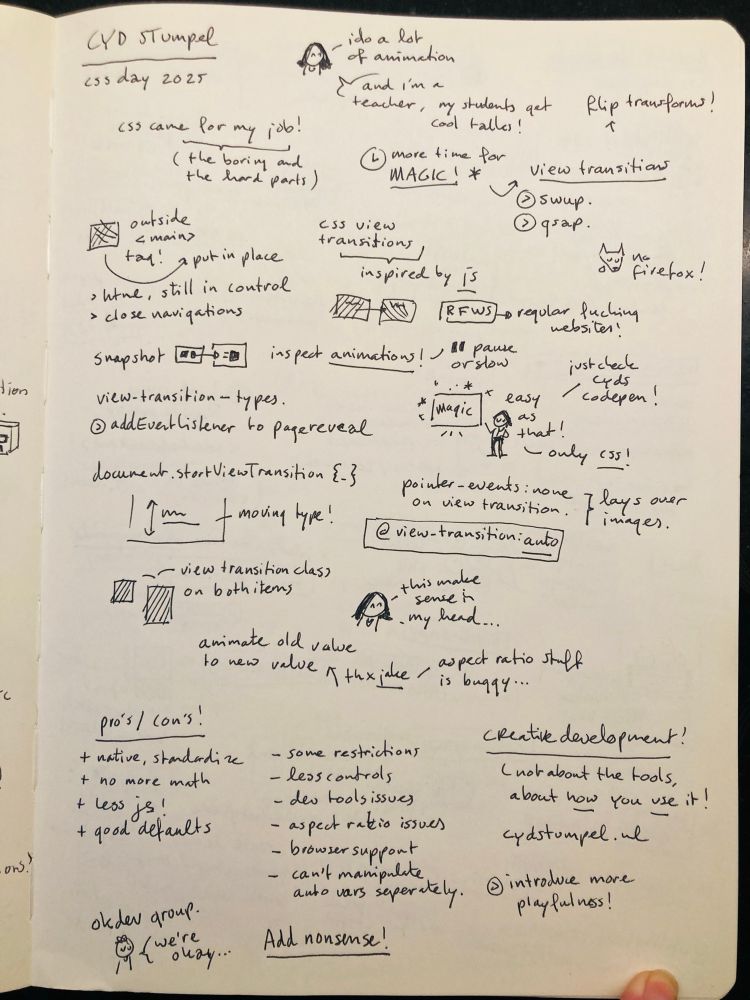 CYD STUMPEL
css day 2025
i do a lot
of animation
and i'm a
teacher, my students get
cool talks!
flip transforms!
css came for my job!
(the boring and
the hard parts)
more time for
MAGIC! *
view transitions
> swup.
> gsap.
outside
<main>
tag!
put in place
> html, still in control
> close navigations
css view
transitions
inspired by js
no
firefox!
RFWS
regular fucking
websites!
snapshot
inspect animations!
pause
or slow
just check
cyds
codepen!
view-transition-types.
> addEventListener to pagereveal
magic
easy
as
that!
only css!
document.startViewTransition {_}
moving type!
pointer-events: none
on view transition.
lays over
images.
@view-transition: auto
view transition class
on both items
this make
sense in
my head...
animate old value
to new value
thx jake
aspect ratio stuff
is buggy...
pro's/con's!
+ native, standardize
+ no more math
+ less js!
+ good defaults
- some restrictions
- less controls
- dev tools issues
- aspect ratio issues
- browser support
- can't manipulate
auto vars seperately.
creative development!
(not about the tools,
about how you use it!
cydstumpel.nl
> introduce more
playfulness!
okdev group.
we're
okay...
Add nonsense!